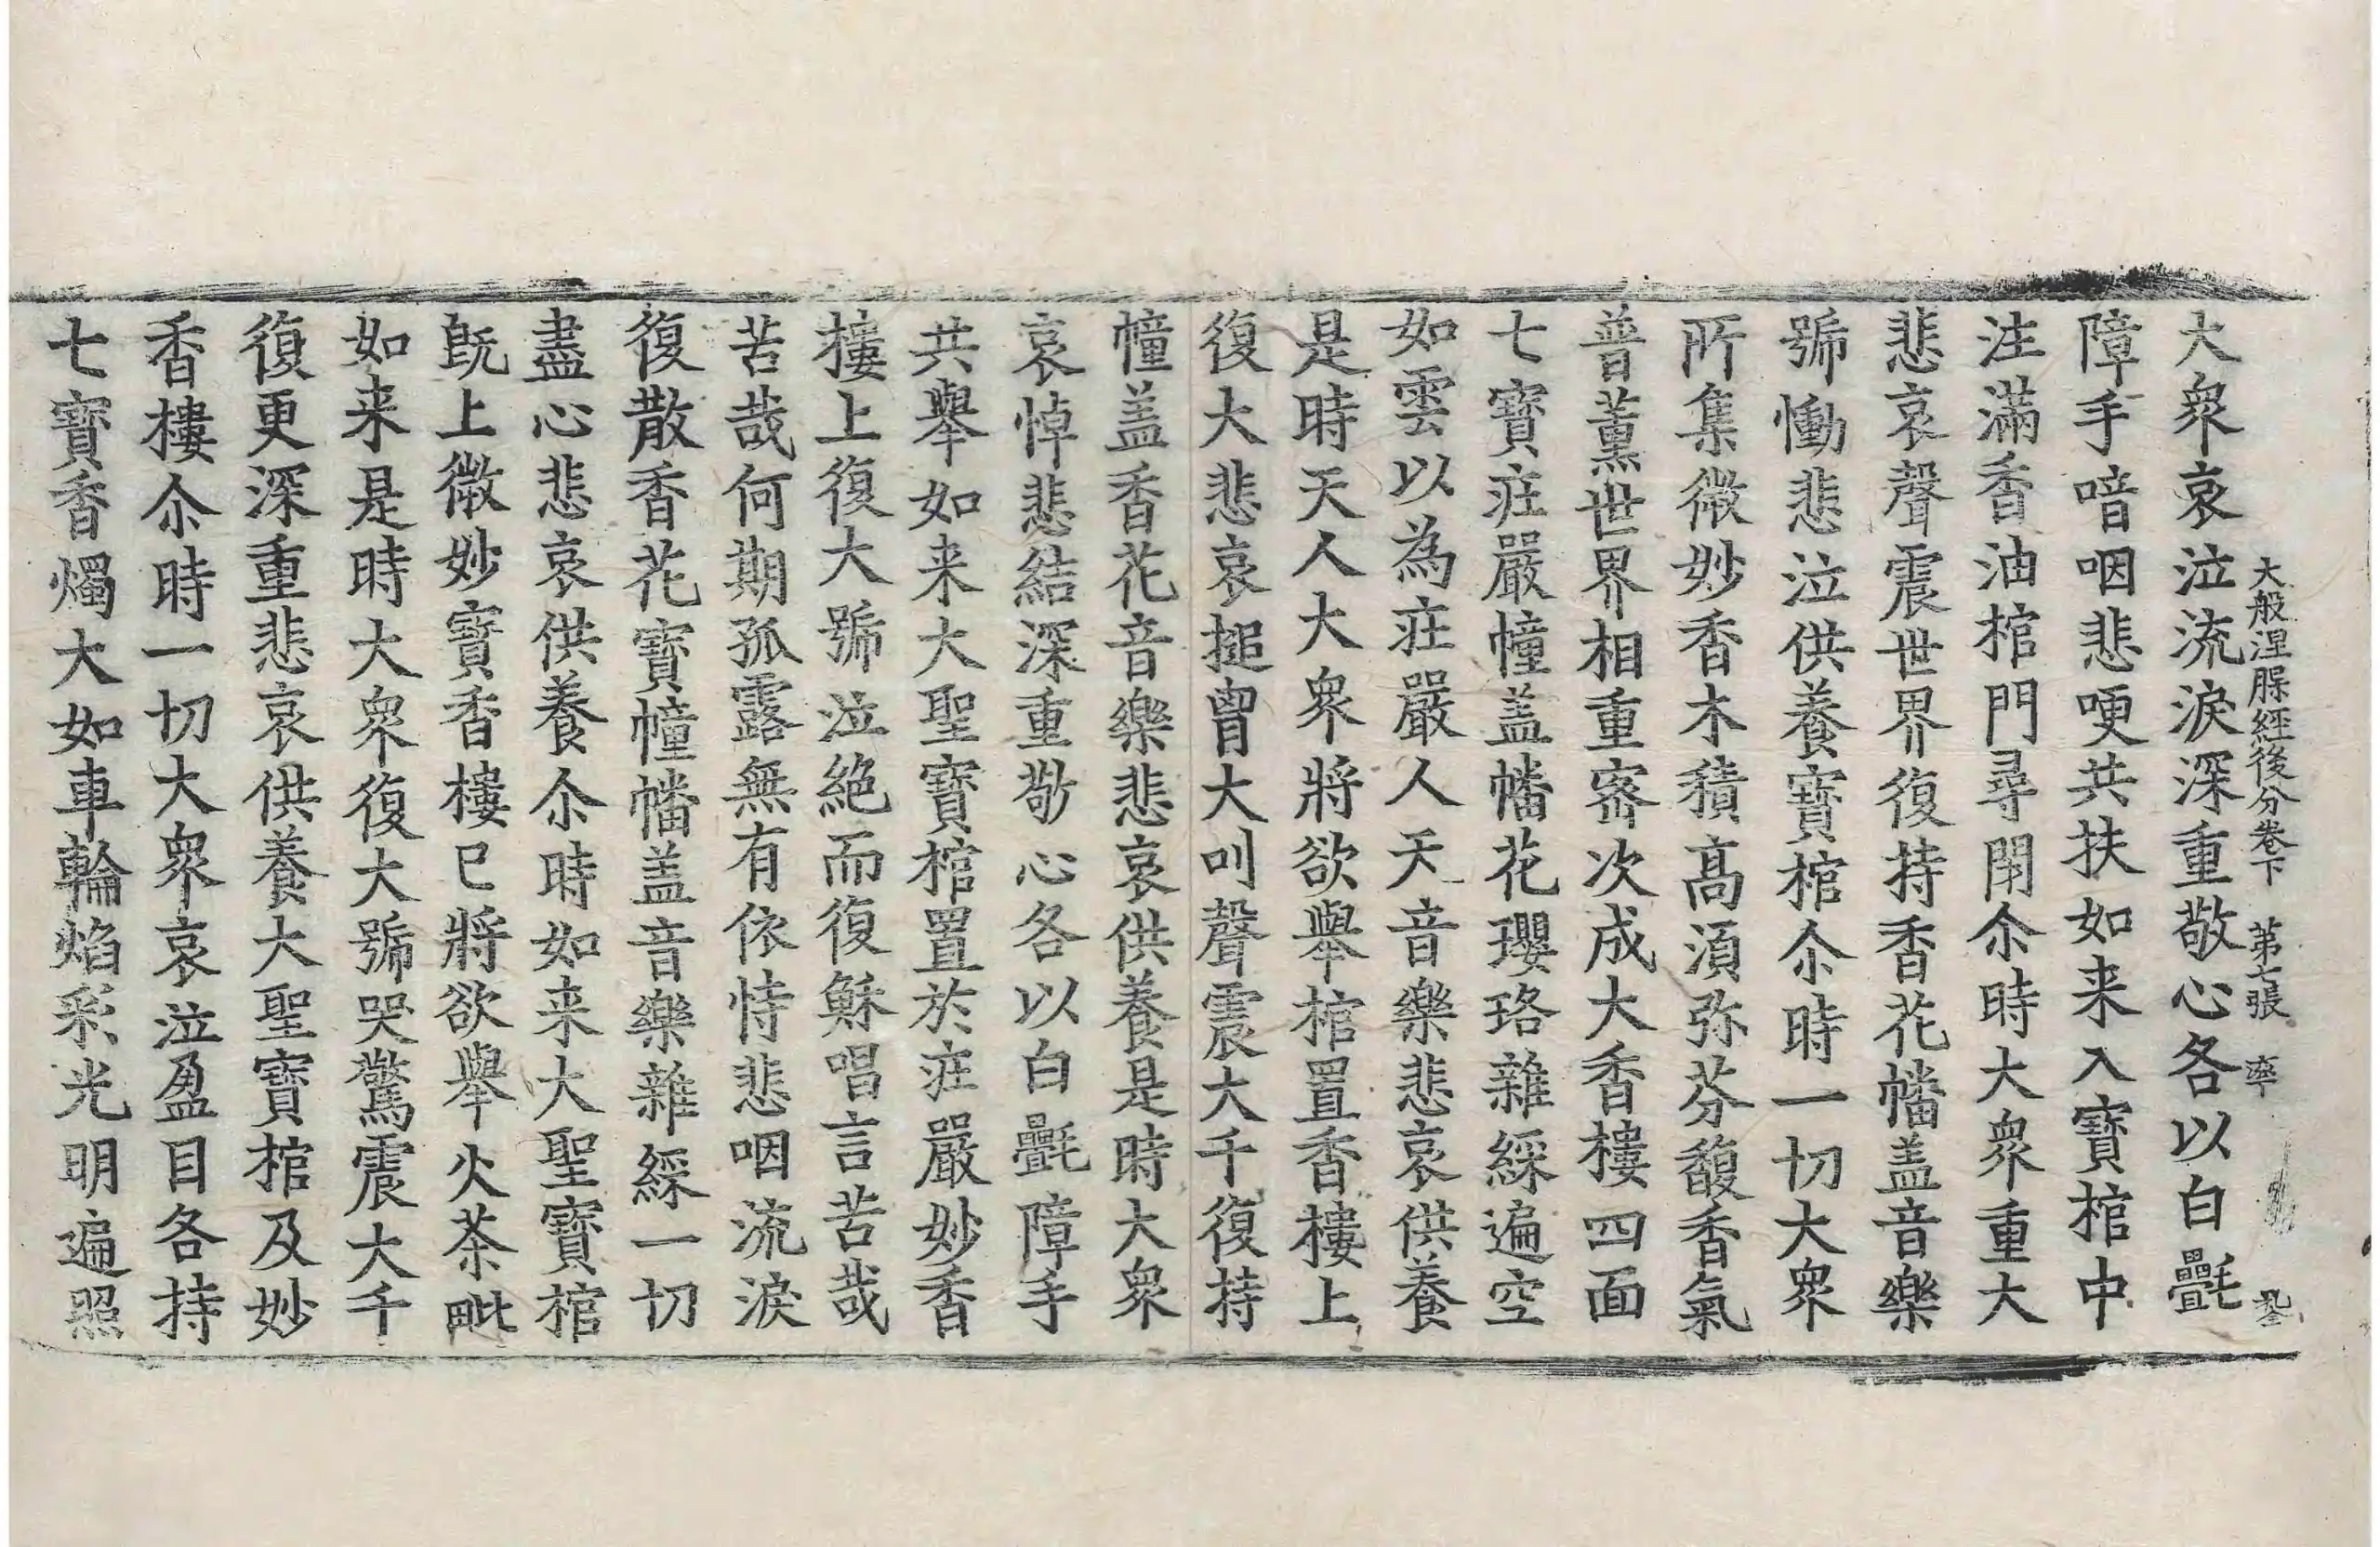 大般涅脲經後分卷下 第七張 率
大衆哀泣流淚深重敬心各以白㲲
障手喑咽悲哽共扶如来入寶棺中
注滿香油棺門尋閇尒時大衆重大
悲哀聲震世界復持香花幡盖音樂
號慟悲泣供養寶棺尒時一切大衆
所集微妙香木積高湏弥芬馥香氣
普薫世界相重宻次成大香樓四面
七寶庄嚴幢盖幡花瓔珞雜綵遍空
如雲以為庄嚴人天音樂悲哀供養
是時天人大衆將欲舉棺置香樓上
復大悲哀搥胷大叫聲震大千復持
幢盖香花音樂悲哀供養是時大衆
哀悼悲結深重敬心各以白㲲障手
共舉如来大聖寶棺置於庄嚴妙香
樓上復大號泣絶而復穌唱言苦哉
苦哉何期孤露無有依恃悲咽流淚
復散香花寶幢幡盖音樂雜綵一切
盡心悲哀供養尒時如来大聖寶棺
旣上微妙寶香樓已將欲舉火茶毗
如来是時大衆復大號哭驚震大千
復更深重悲哀供養大聖寶棺及妙
香樓尒時一切大衆哀泣盈目各持
七寶香燭大如車輪焰彩光明遍照